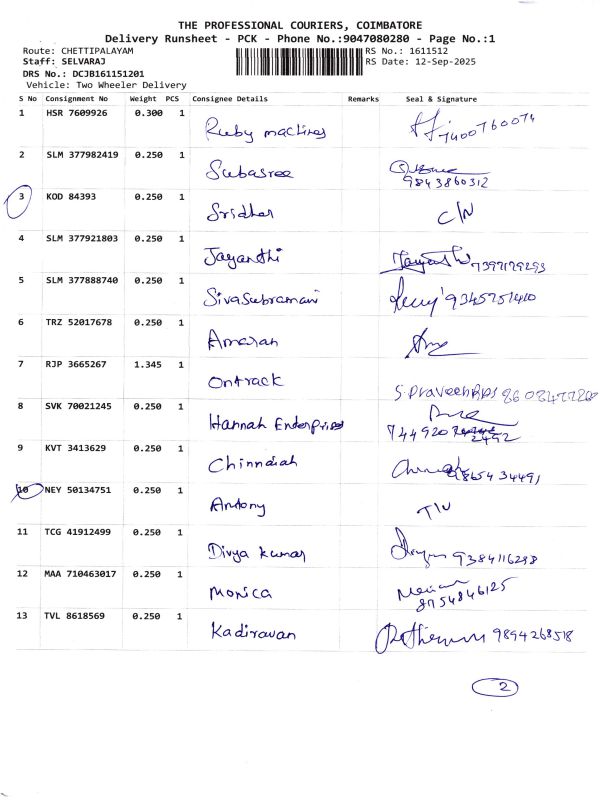 THE PROFESSIONAL COURIERS, COIMBATORE
Delivery Runsheet - PCK - Phone No.:9047080280 - Page No.:1
Route: CHETTIPALAYAM RS No.: 1611512
Staff: SELVARAJ RS Date: 12-Sep-2025
DRS No.: DCJB161151201
Vehicle: Two Wheeler Delivery
S No Consignment No Weight PCS Consignee Details Remarks Seal & Signature
1 HSR 7609926 0.300 1 Ruby 7400760074
2 SLM 377982419 0.250 1 Subasree 9843860312
3 KOD 84393 0.250 1 Sridhar C/N
4 SLM 377921803 0.250 1 Jayanthi
5 SLM 377888740 0.250 1 Sivasubramani 9345751410
6 TRZ 52017678 0.250 1 Amaran
7 RJP 3665267 1.345 1 Ontrack S. Praveen
8 SVK 70021245 0.250 1 Hannah Enterprises 744920 2492
9 KVT 3413629 0.250 1 Chinnaiah
10 NEY 50134751 0.250 1 Antony
11 TCG 41912499 0.250 1 Divya kumar
12 MAA 710463017 0.250 1 Monica 8754846125
13 TVL 8618569 0.250 1 Kadiravan 9894268518
2